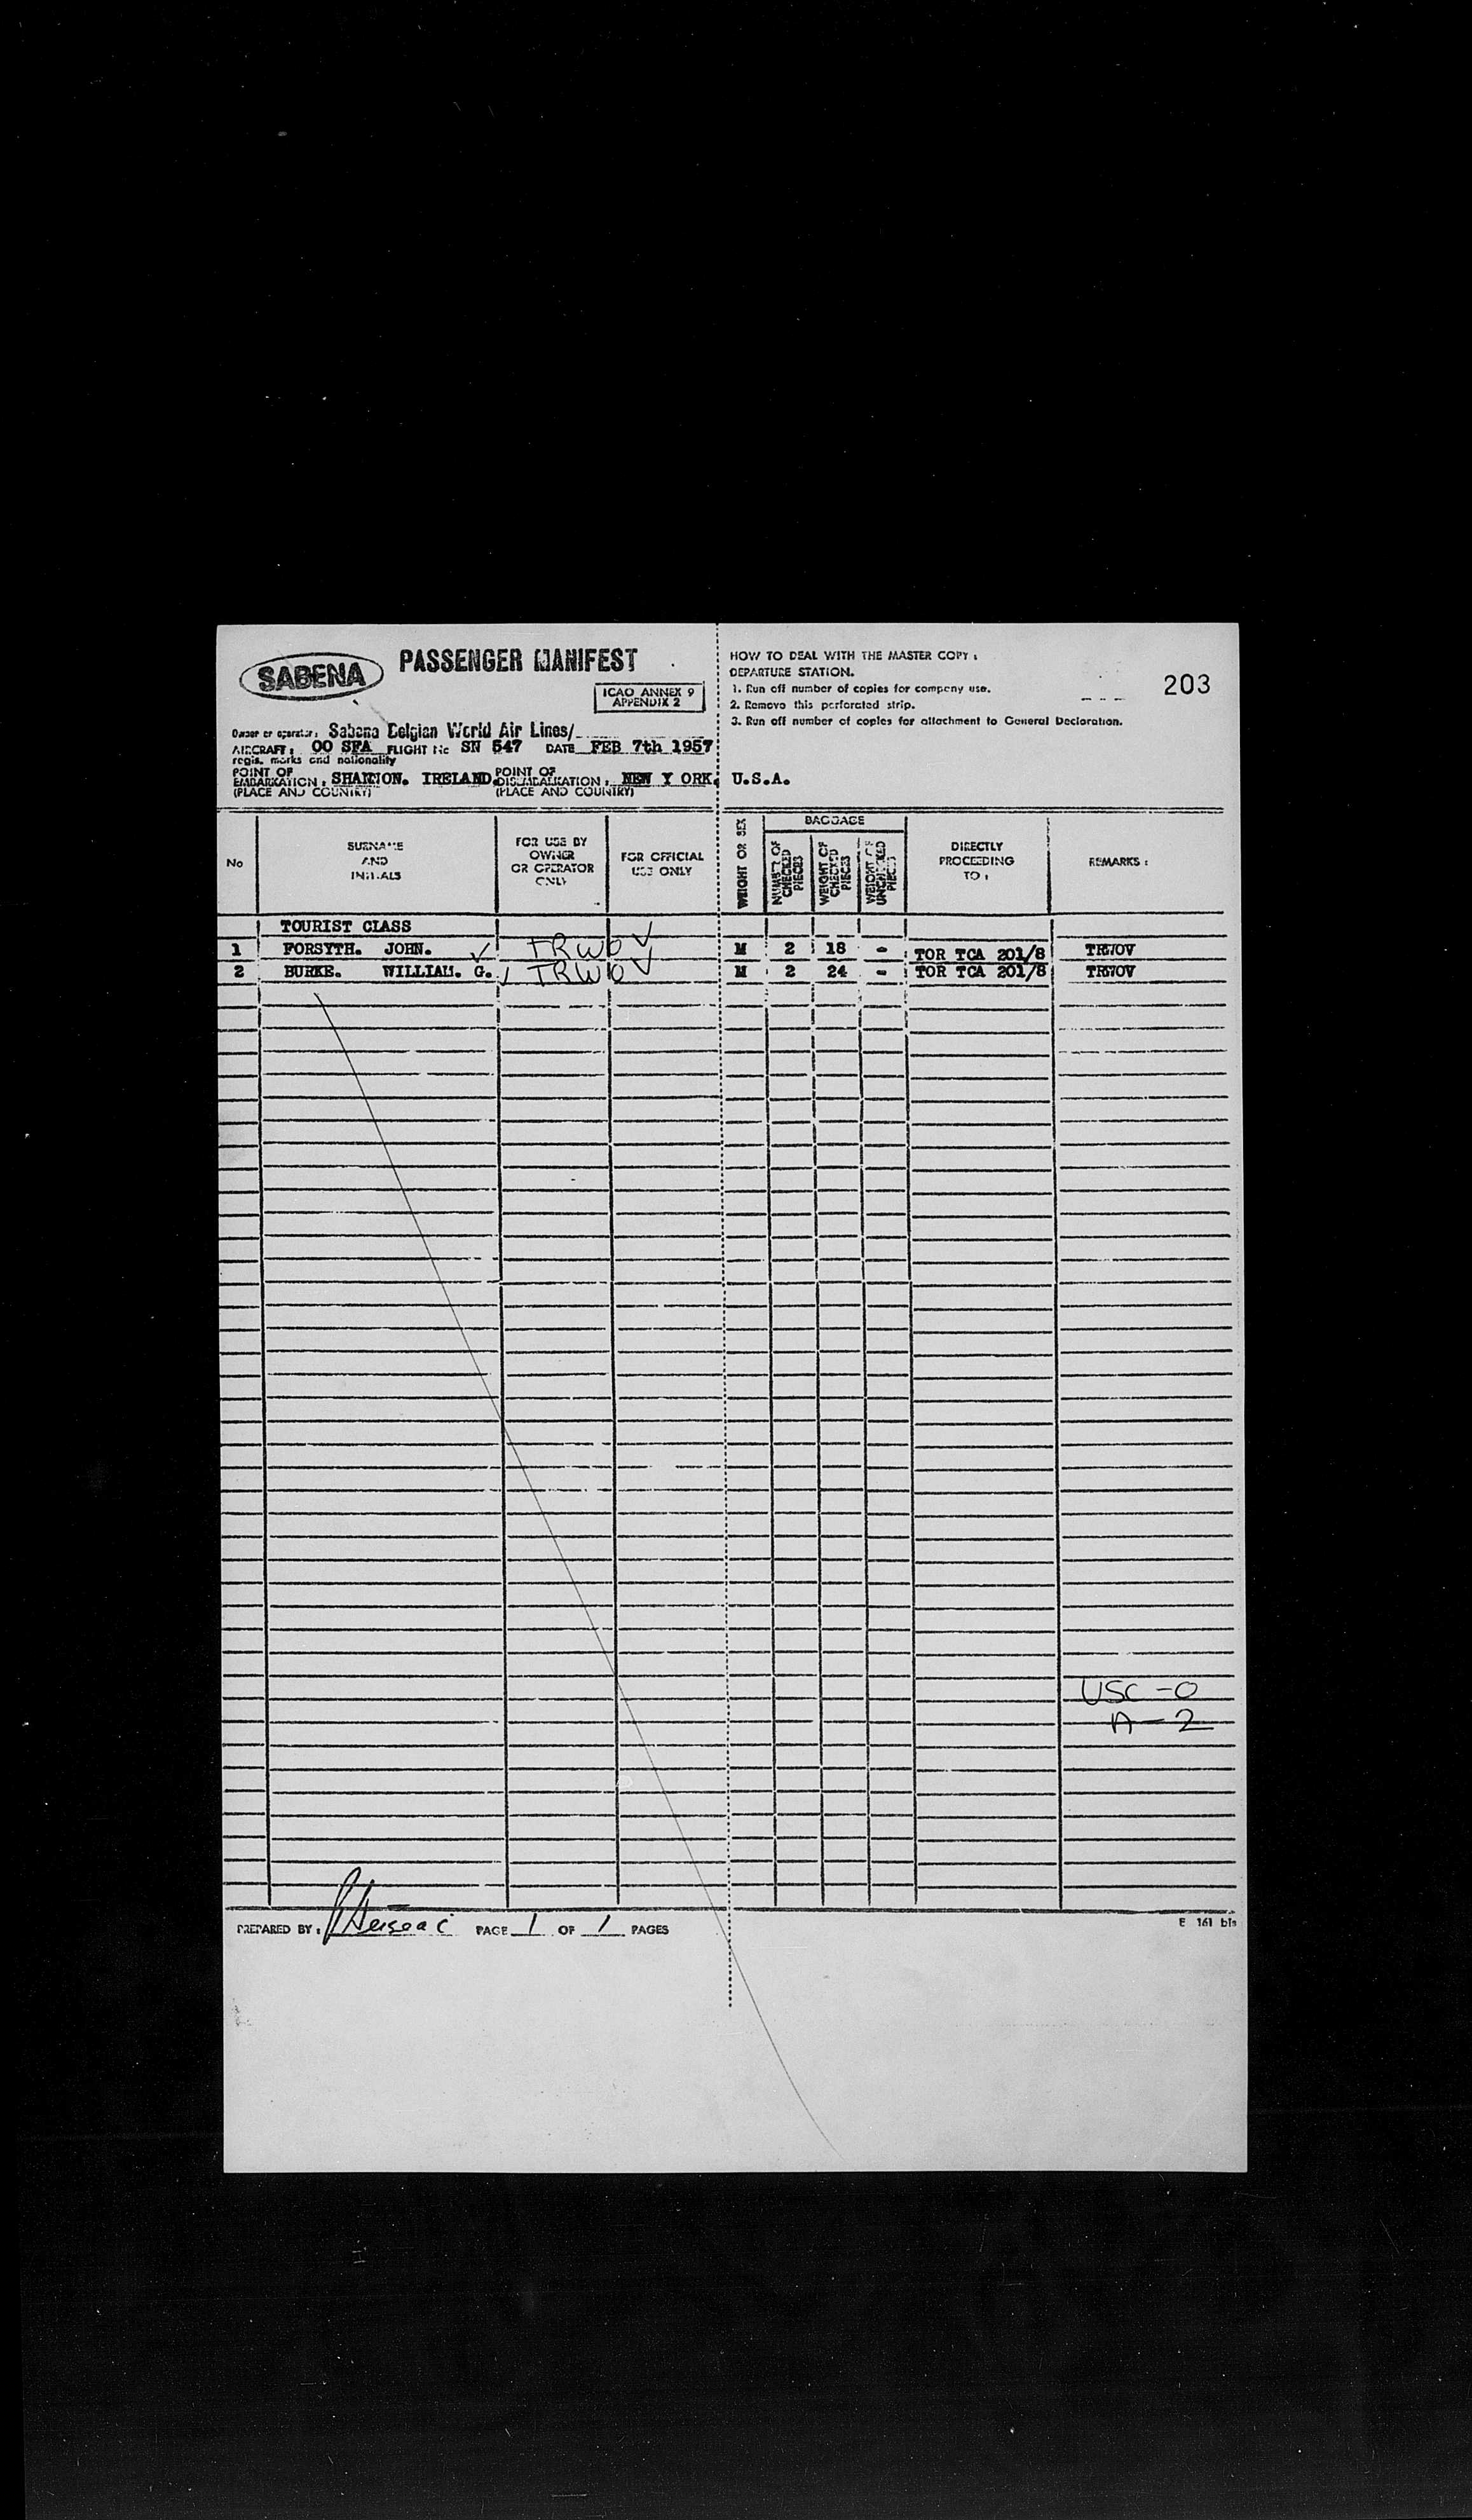 SABENA
PASSENGER MANIFEST
ICAO ANNEX 9
APPENDIX 2
Owner or operator: Sabena Belgian World Air Lines/
AIRCRAFT: OO SFA FLIGHT No SN 547 DATE FEB 7th 1957
regis. marks and nationality
POINT OF EMBARKATION: SHANNON. IRELAND. POINT OF DISEMBARKATION: NEW Y ORK. U.S.A.
(PLACE AND COUNTRY) (PLACE AND COUNTRY)
HOW TO DEAL WITH THE MASTER COPY:
DEPARTURE STATION.
1. Run off number of copies for company use.
2. Remove this perforated strip.
3. Run off number of copies for attachment to General Declaration.
203
No
SURNAME
AND
INITIALS
FOR USE BY
OWNER
OR OPERATOR
ONLY
FOR OFFICIAL
USE ONLY
WEIGHT OR SEX
BAGGAGE
NUMBER OF
CHECKED
PIECES
WEIGHT OF
CHECKED
PIECES
WEIGHT OF
UNCHECKED
PIECES
DIRECTLY
PROCEEDING
TO:
REMARKS:
TOURIST CLASS
1 FORSYTH. JOHN. ✓ TRWO ✓ M 2 18 - TOR TCA 201/8 TRWOV
2 BURKE. WILLIAM. G. ✓ TRWO ✓ M 2 24 - TOR TCA 201/8 TRWOV
USC - 0
A - 2
PREPARED BY: PAGE 1 OF 1 PAGES
E 161 bis